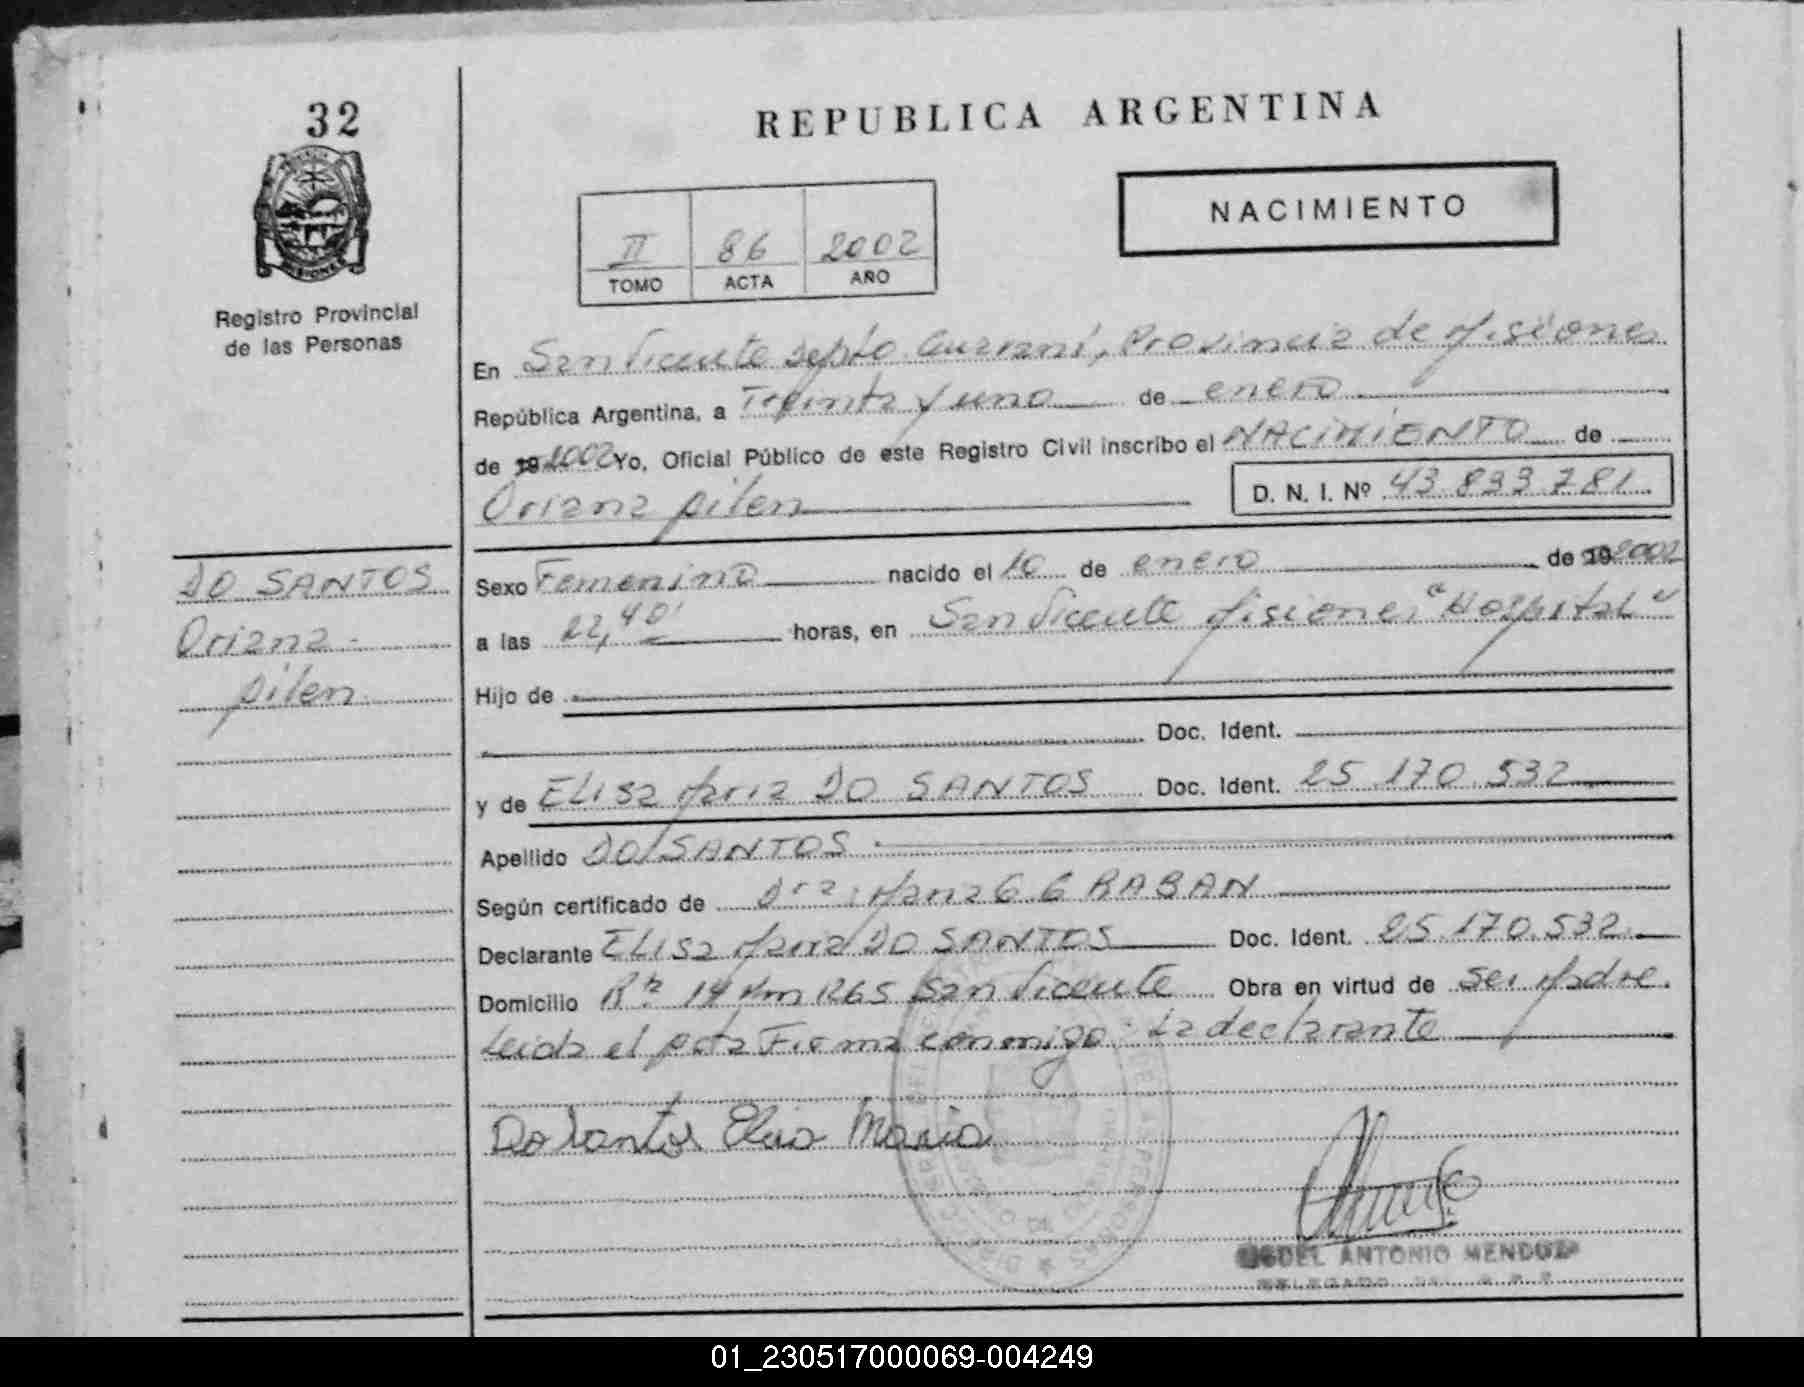 32
REPUBLICA ARGENTINA
NACIMIENTO
II 86 2002
TOMO ACTA AÑO
MISIONES
Registro Provincial
de las Personas
En San Vicente Depto Guaraní, Provincia de Misiones
República Argentina, a Treinta y uno de enero
de 19 2002 Yo, Oficial Público de este Registro Civil inscribo el NACIMIENTO de
Oriana pilen D. N. I. Nº 43.833.781
DO SANTOS
Oriana
pilen
Sexo Femenino nacido el 10 de enero de 19 2002
a las 22,40' horas, en San Vicente Misiones "Hospital"
Hijo de
Doc. Ident.
y de ELISa Maria DO SANTOS Doc. Ident. 25.170.532
Apellido DO SANTOS
Según certificado de Dra: Maria G. G RABAN
Declarante ELISa Maria DO SANTOS Doc. Ident. 25.170.532
Domicilio Rta 14 Km 1265 San Vicente Obra en virtud de ser Madre.
Leida el acta Firma conmigo: La declarante
Do Santos Elisa Maria
ANTONIO MENDOZA
DELEGADO DEL R.P.P.
01_230517000069-004249